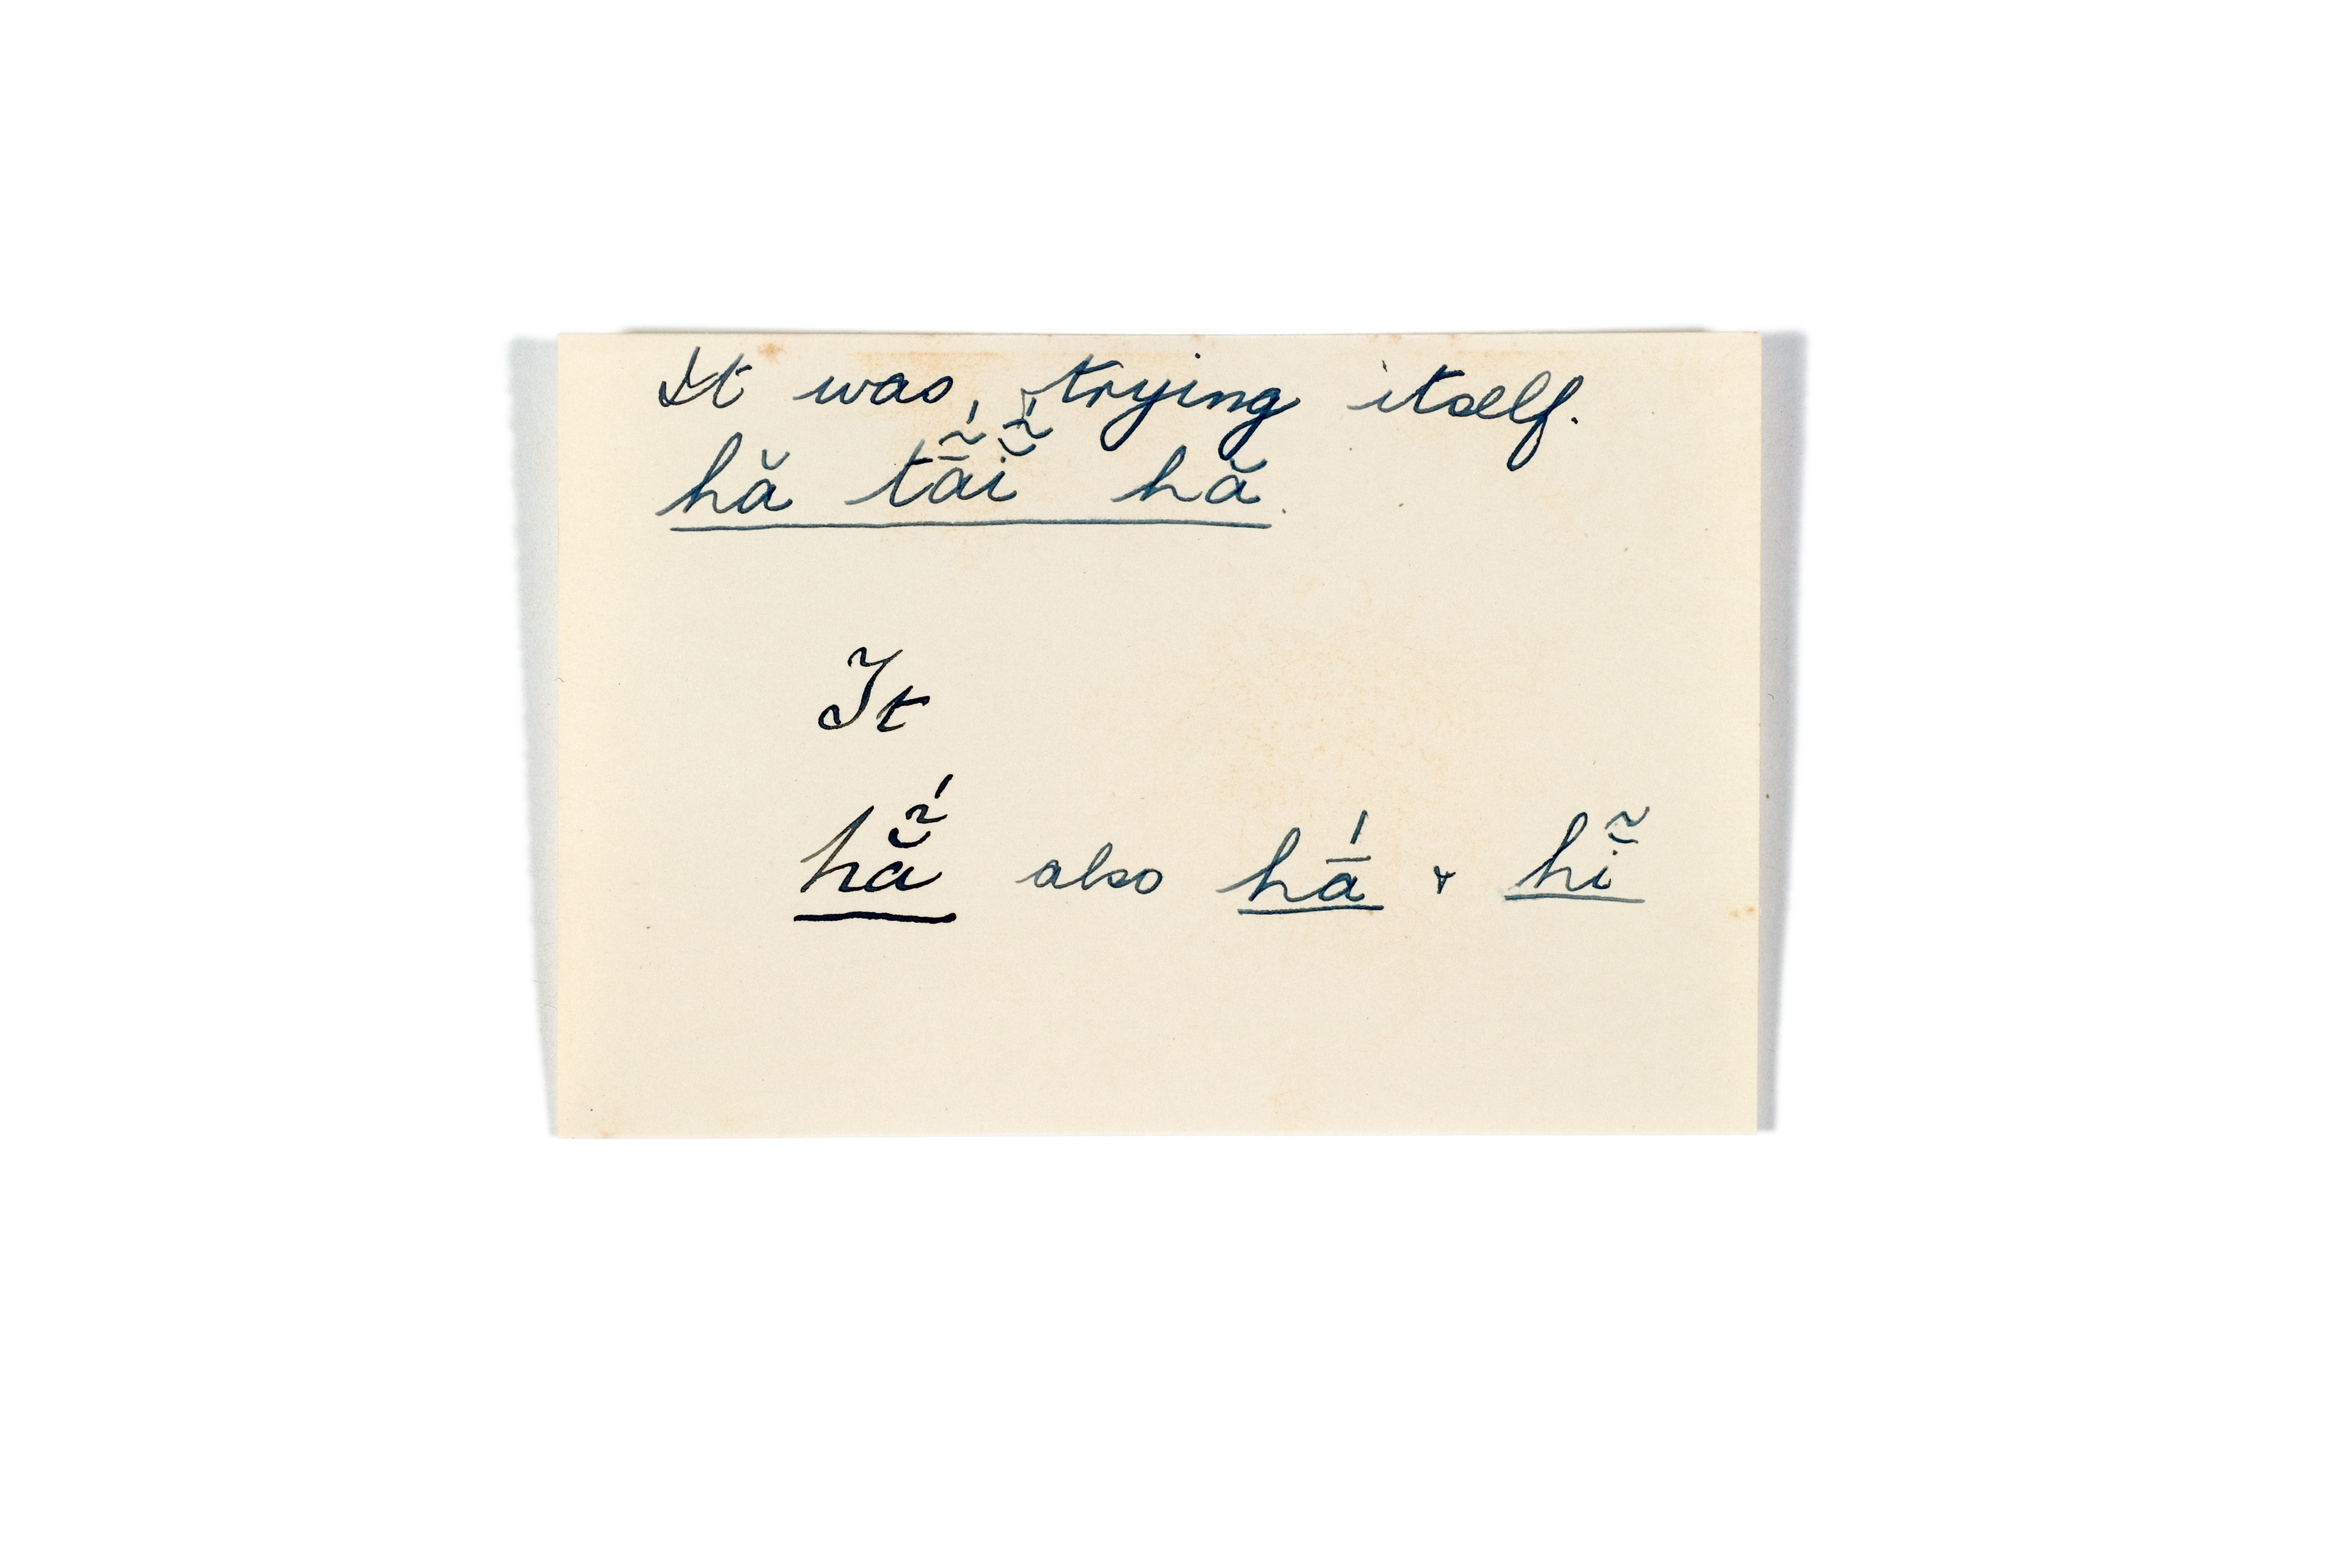 It was, trying itself.
hă tā̰́ḭ̆́ hă.
It
hẵ́ also hā́ & hĭ̃